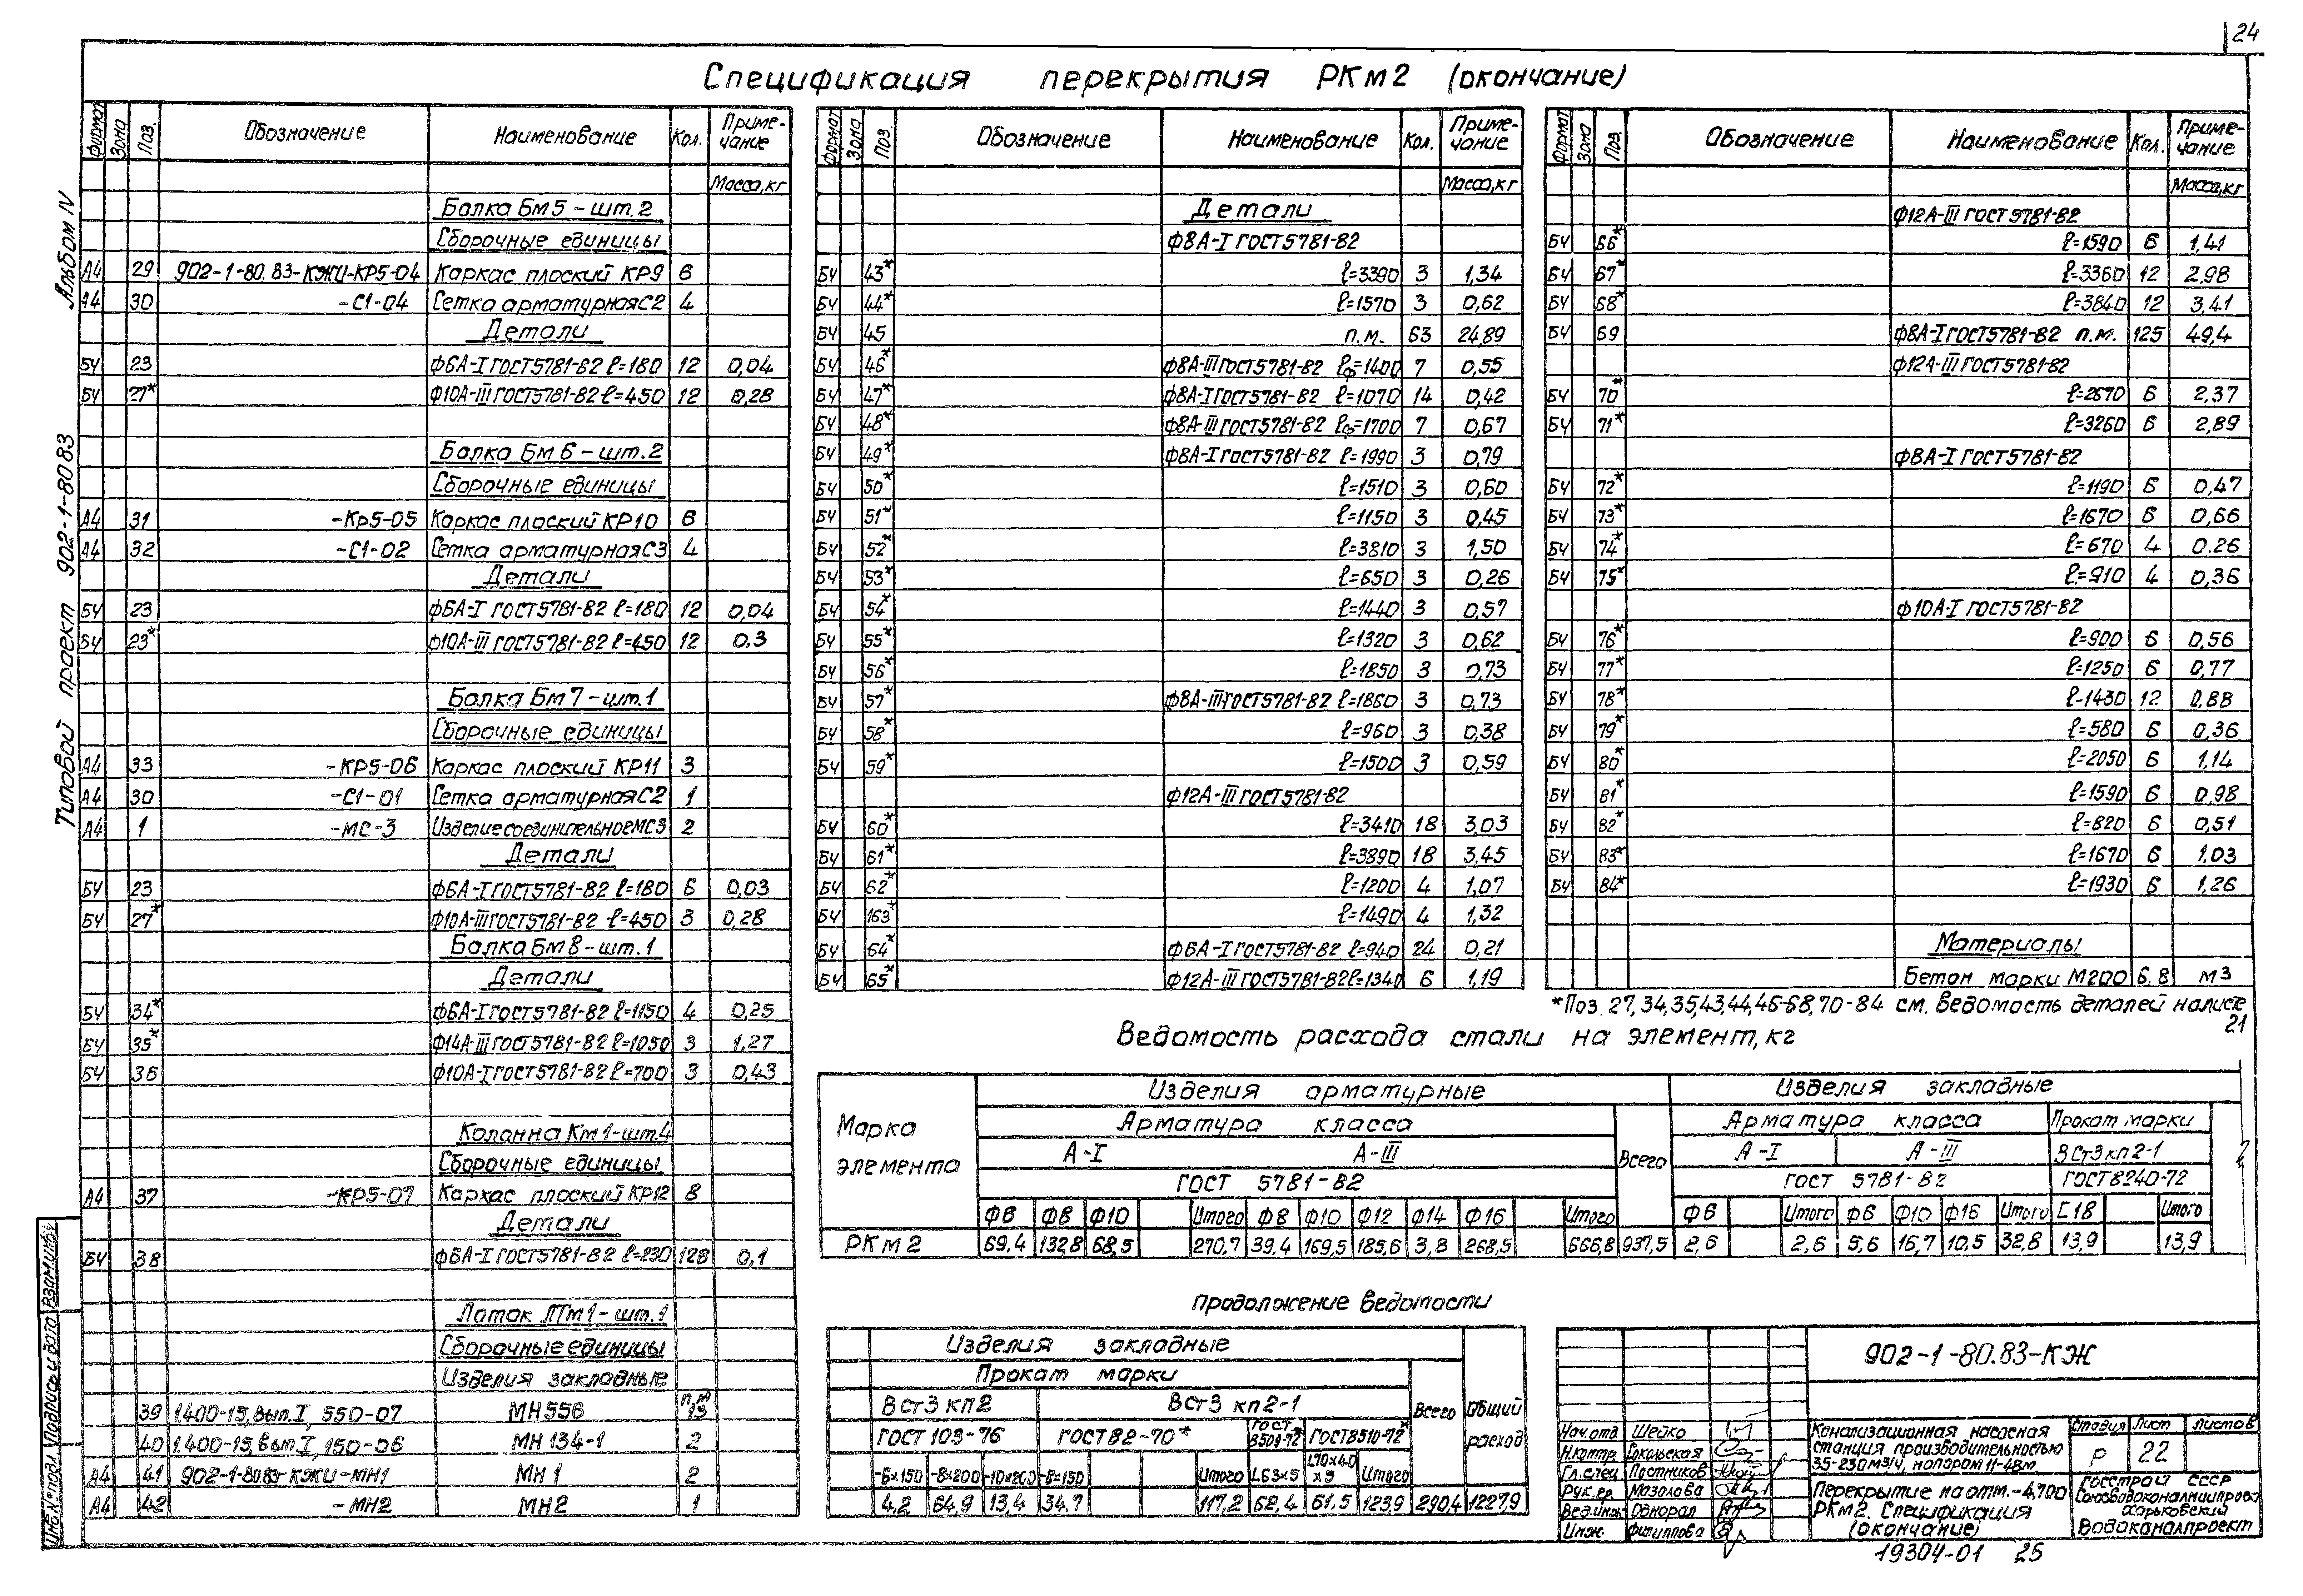 24
Спецификация перекрытия РКм2 (окончание)
Альбом IV
Типовой проект 902-1-80 83
Формат Зона Поз. Обозначение Наименование Кол. Примечание
Масса, кг
Балка Бм5 – шт.2
Сборочные единицы
А4 29 902-1-80.83-КЖИ-КР5-04 Каркас плоский КР9 6
А4 30 -С1-04 Сетка арматурная С2 4
Детали
БЧ 23 Ф6А-I ГОСТ5781-82 ℓ=180 12 0,04
БЧ 27* Ф10А-III ГОСТ5781-82 ℓ=450 12 0,28
Балка Бм6 – шт.2
Сборочные единицы
А4 31 -Кр5-05 Каркас плоский КР10 6
А4 32 -С1-02 Сетка арматурная С3 4
Детали
БЧ 23 Ф6А-I ГОСТ5781-82 ℓ=180 12 0,04
БЧ 23* Ф10А-III ГОСТ5781-82 ℓ=450 12 0,3
Балка Бм7 – шт.1
Сборочные единицы
А4 33 -КР5-06 Каркас плоский КР11 3
А4 30 -С1-01 Сетка арматурная С2 1
А4 1 -МС-3 Изделие соединительное МС3 2
Детали
БЧ 23 Ф6А-I ГОСТ5781-82 ℓ=180 6 0,03
БЧ 27* Ф10А-III ГОСТ5781-82 ℓ=450 3 0,28
Балка Бм8 – шт.1
Детали
БЧ 34* Ф6А-I ГОСТ5781-82 ℓ=1150 4 0,25
БЧ 35* Ф14А-III ГОСТ5781-82 ℓ=1050 3 1,27
БЧ 36 Ф10А-I ГОСТ5781-82 ℓ=700 3 0,43
Колонна Км1-шт.4
Сборочные единицы
А4 37 -КР5-07 Каркас плоский КР12 8
Детали
БЧ 38 Ф6А-I ГОСТ5781-82 ℓ=230 128 0,1
Лоток ЛТм1 – шт.1
Сборочные единицы
Изделия закладные
39 1.400-15, вып.I, 550-07 МН556 п.м 13
40 1.400-15, вып.I, 150-06 МН 134-1 2
А4 41 902-1-80.83-КЖИ-МН1 МН1 2
А4 42 -МН2 МН2 1
Формат Зона Поз. Обозначение Наименование Кол. Примечание
Масса, кг
Детали
Ф8А-I ГОСТ5781-82
БЧ 43* ℓ=3390 3 1,34
БЧ 44* ℓ=1570 3 0,62
БЧ 45 п.м. 63 24,89
БЧ 46* Ф8А-III ГОСТ5781-82 ℓср=1400 7 0,55
БЧ 47* Ф8А-I ГОСТ5781-82 ℓ=1070 14 0,42
БЧ 48* Ф8А-III ГОСТ5781-82 ℓср=1700 7 0,67
БЧ 49* Ф8А-I ГОСТ5781-82 ℓ=1990 3 0,79
БЧ 50* ℓ=1510 3 0,60
БЧ 51* ℓ=1150 3 0,45
БЧ 52* ℓ=3810 3 1,50
БЧ 53* ℓ=650 3 0,26
БЧ 54* ℓ=1440 3 0,57
БЧ 55* ℓ=1320 3 0,62
БЧ 56* ℓ=1850 3 0,73
БЧ 57* Ф8А-III ГОСТ5781-82 ℓ=1860 3 0,73
БЧ 58* ℓ=960 3 0,38
БЧ 59* ℓ=1500 3 0,59
Ф12А-III ГОСТ5781-82
БЧ 60* ℓ=3410 18 3,03
БЧ 61* ℓ=3890 18 3,45
БЧ 62* ℓ=1200 4 1,07
БЧ 163* ℓ=1490 4 1,32
БЧ 64* Ф6А-I ГОСТ5781-82 ℓ=940 24 0,21
БЧ 65* Ф12А-III ГОСТ5781-82 ℓ=1340 6 1,19
Формат Зона Поз. Обозначение Наименование Кол. Примечание
Масса, кг
Ф12А-III ГОСТ5781-82
БЧ 66* ℓ=1590 6 1,41
БЧ 67* ℓ=3360 12 2,98
БЧ 68* ℓ=3840 12 3,41
БЧ 69 Ф8А-I ГОСТ5781-82 п.м. 125 49,4
Ф12А-III ГОСТ5781-82
БЧ 70* ℓ=2670 6 2,37
БЧ 71* ℓ=3260 6 2,89
Ф8А-I ГОСТ5781-82
БЧ 72* ℓ=1190 6 0,47
БЧ 73* ℓ=1670 6 0,66
БЧ 74* ℓ=670 4 0.26
БЧ 75* ℓ=910 4 0,36
Ф10А-I ГОСТ5781-82
БЧ 76* ℓ=900 6 0,56
БЧ 77* ℓ=1250 6 0,77
БЧ 78* ℓ-1430 12 0,88
БЧ 79* ℓ=580 6 0,36
БЧ 80* ℓ=2050 6 1,14
БЧ 81* ℓ=1590 6 0,98
БЧ 82* ℓ=820 6 0,51
БЧ 83* ℓ=1670 6 1.03
БЧ 84* ℓ=1930 6 1,26
Материалы
Бетон марки М200 6,8 м3
*Поз. 27,34,35,43,44,46-68,70-84 см. ведомость деталей на листе 21
Ведомость расхода стали на элемент, кг
Марка элемента Изделия арматурные Изделия закладные
Арматура класса Всего Арматура класса Прокат марки
А-I А-III А-I А-III ВСт3 кп2-1
ГОСТ 5781-82 ГОСТ 5781-82 ГОСТ8240-72
Ф6 Ф8 Ф10 Итого Ф8 Ф10 Ф12 Ф14 Ф16 Итого Ф6 Итого Ф6 Ф10 Ф16 Итого [18 Итого
РКм2 69,4 132,8 68,5 270,7 39,4 169,5 185,6 3,8 268,5 666,8 937,5 2,6 2,6 5,6 16,7 10,5 32,8 13,9 13,9
Продолжение ведомости
Изделия закладные
Прокат марки Всего Общий расход
ВСт3 кп2 ВСт3 кп2-1
ГОСТ 103-76 ГОСТ82-70* ГОСТ 8509-72 ГОСТ8510-72*
-6×150 -8×200 -10×200 -8×150 Итого L63×5 L70×40×5 Итого
4,2 64,9 13,4 34,7 117,2 62,4 61,5 123,9 290,4 1227,9
902-1-80.83-КЖ
Нач.отд Шейко
Н.контр. Сокольская
Гл.спец Постников
Рук.гр. Мазолова
Вед.инж Однорал
Инж. Филиппова
Канализационная насосная станция производительностью 35-230м3/ч, напором 11-48м
Стадия Лист Листов
Р 22
Перекрытие на отм.-4,700
РКм2. Спецификация
(окончание)
Госстрой СССР
Союзводоканалниипроект
Харьковский
Водоканалпроект
Инв.№подл. Подпись и дата Взам.инв.№
19304-01 25